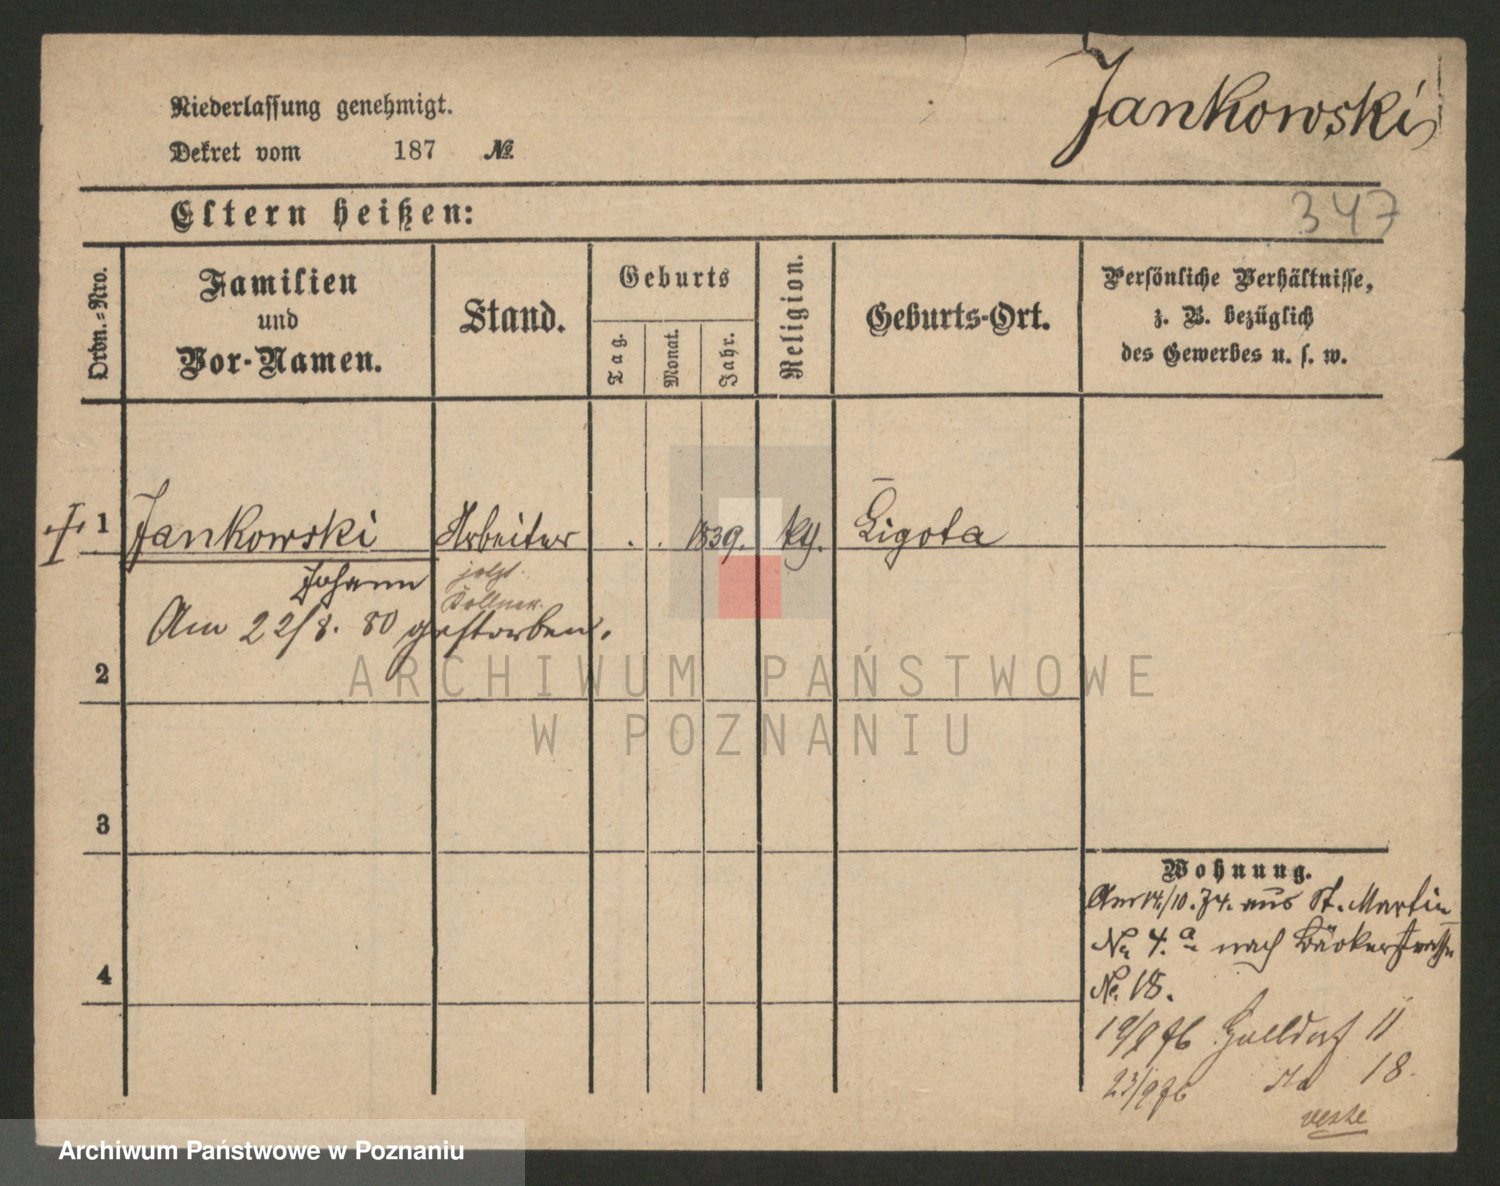 Jankowski
Niederlassung genehmigt.
Dekret vom 187 №
347
Eltern heißen:
Ordn.=Nro.
Familien
und
Vor-Namen.
Stand.
Geburts
Tag.
Monat.
Jahr.
Religion.
Geburts-Ort.
Persönliche Verhältnisse,
z. B. bezüglich
des Gewerbes u. s. w.
1 Jankowski Arbeiter . . 1839. kth. Ligota
Johann jetzt
Kellner.
Am 22/8. 80 gestorben.
2
3
4
Wohnung.
Am 14./10. 74. aus St. Martin
No 4.a nach Bäckerstraße
No. 18.
19/9 76 11
23/9 76 do 18.
ARCHIWUM PAŃSTWOWE
W POZNANIU
Archiwum Państwowe w Poznaniu